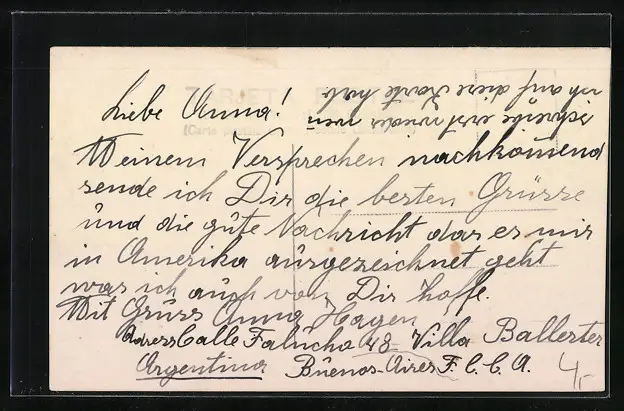 Liebe Anna!
Meinem Versprechen nachkommend
sende ich Dir die besten Grüsse
und die gute Nachricht das es mir
in Amerika ausgezeichnet geht
was ich auch von Dir hoffe.
Mit Gruss Anna Hagen
Adress Calle Falucho 48 Villa Ballester
Argentina Buenos-Aires F.C.C.A.
schreibe erst wieder wen
ich auf diese Karte hab
4,-